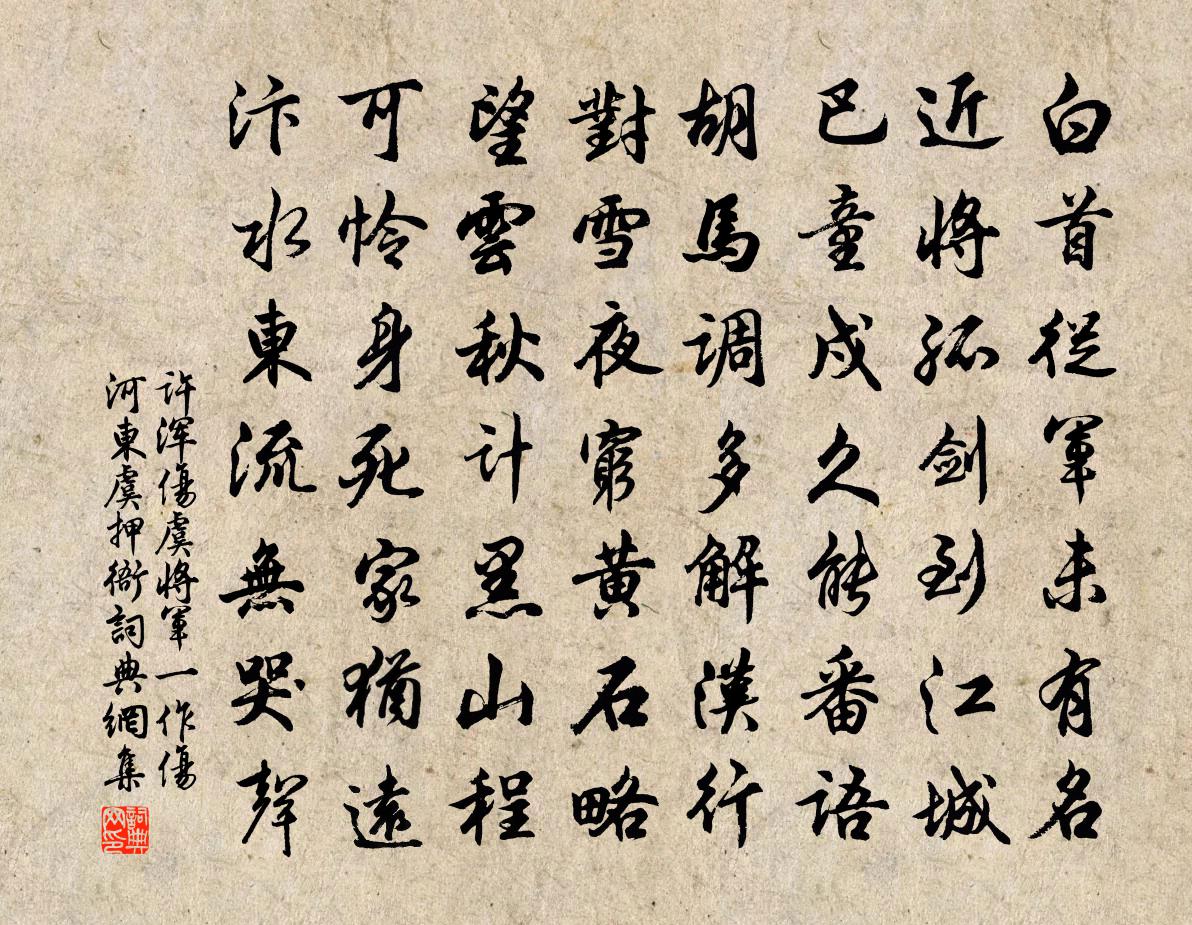 白首從軍未有名
近將孤劍到江城
巴童戍久能番語
胡馬調多解漢行
對雪夜窮黃石略
望雲秋計黑山程
可憐身死家猶遠
汴水東流無哭聲
許渾傷虞將軍一作傷
河東虞押衙詞典網集
詞典网印